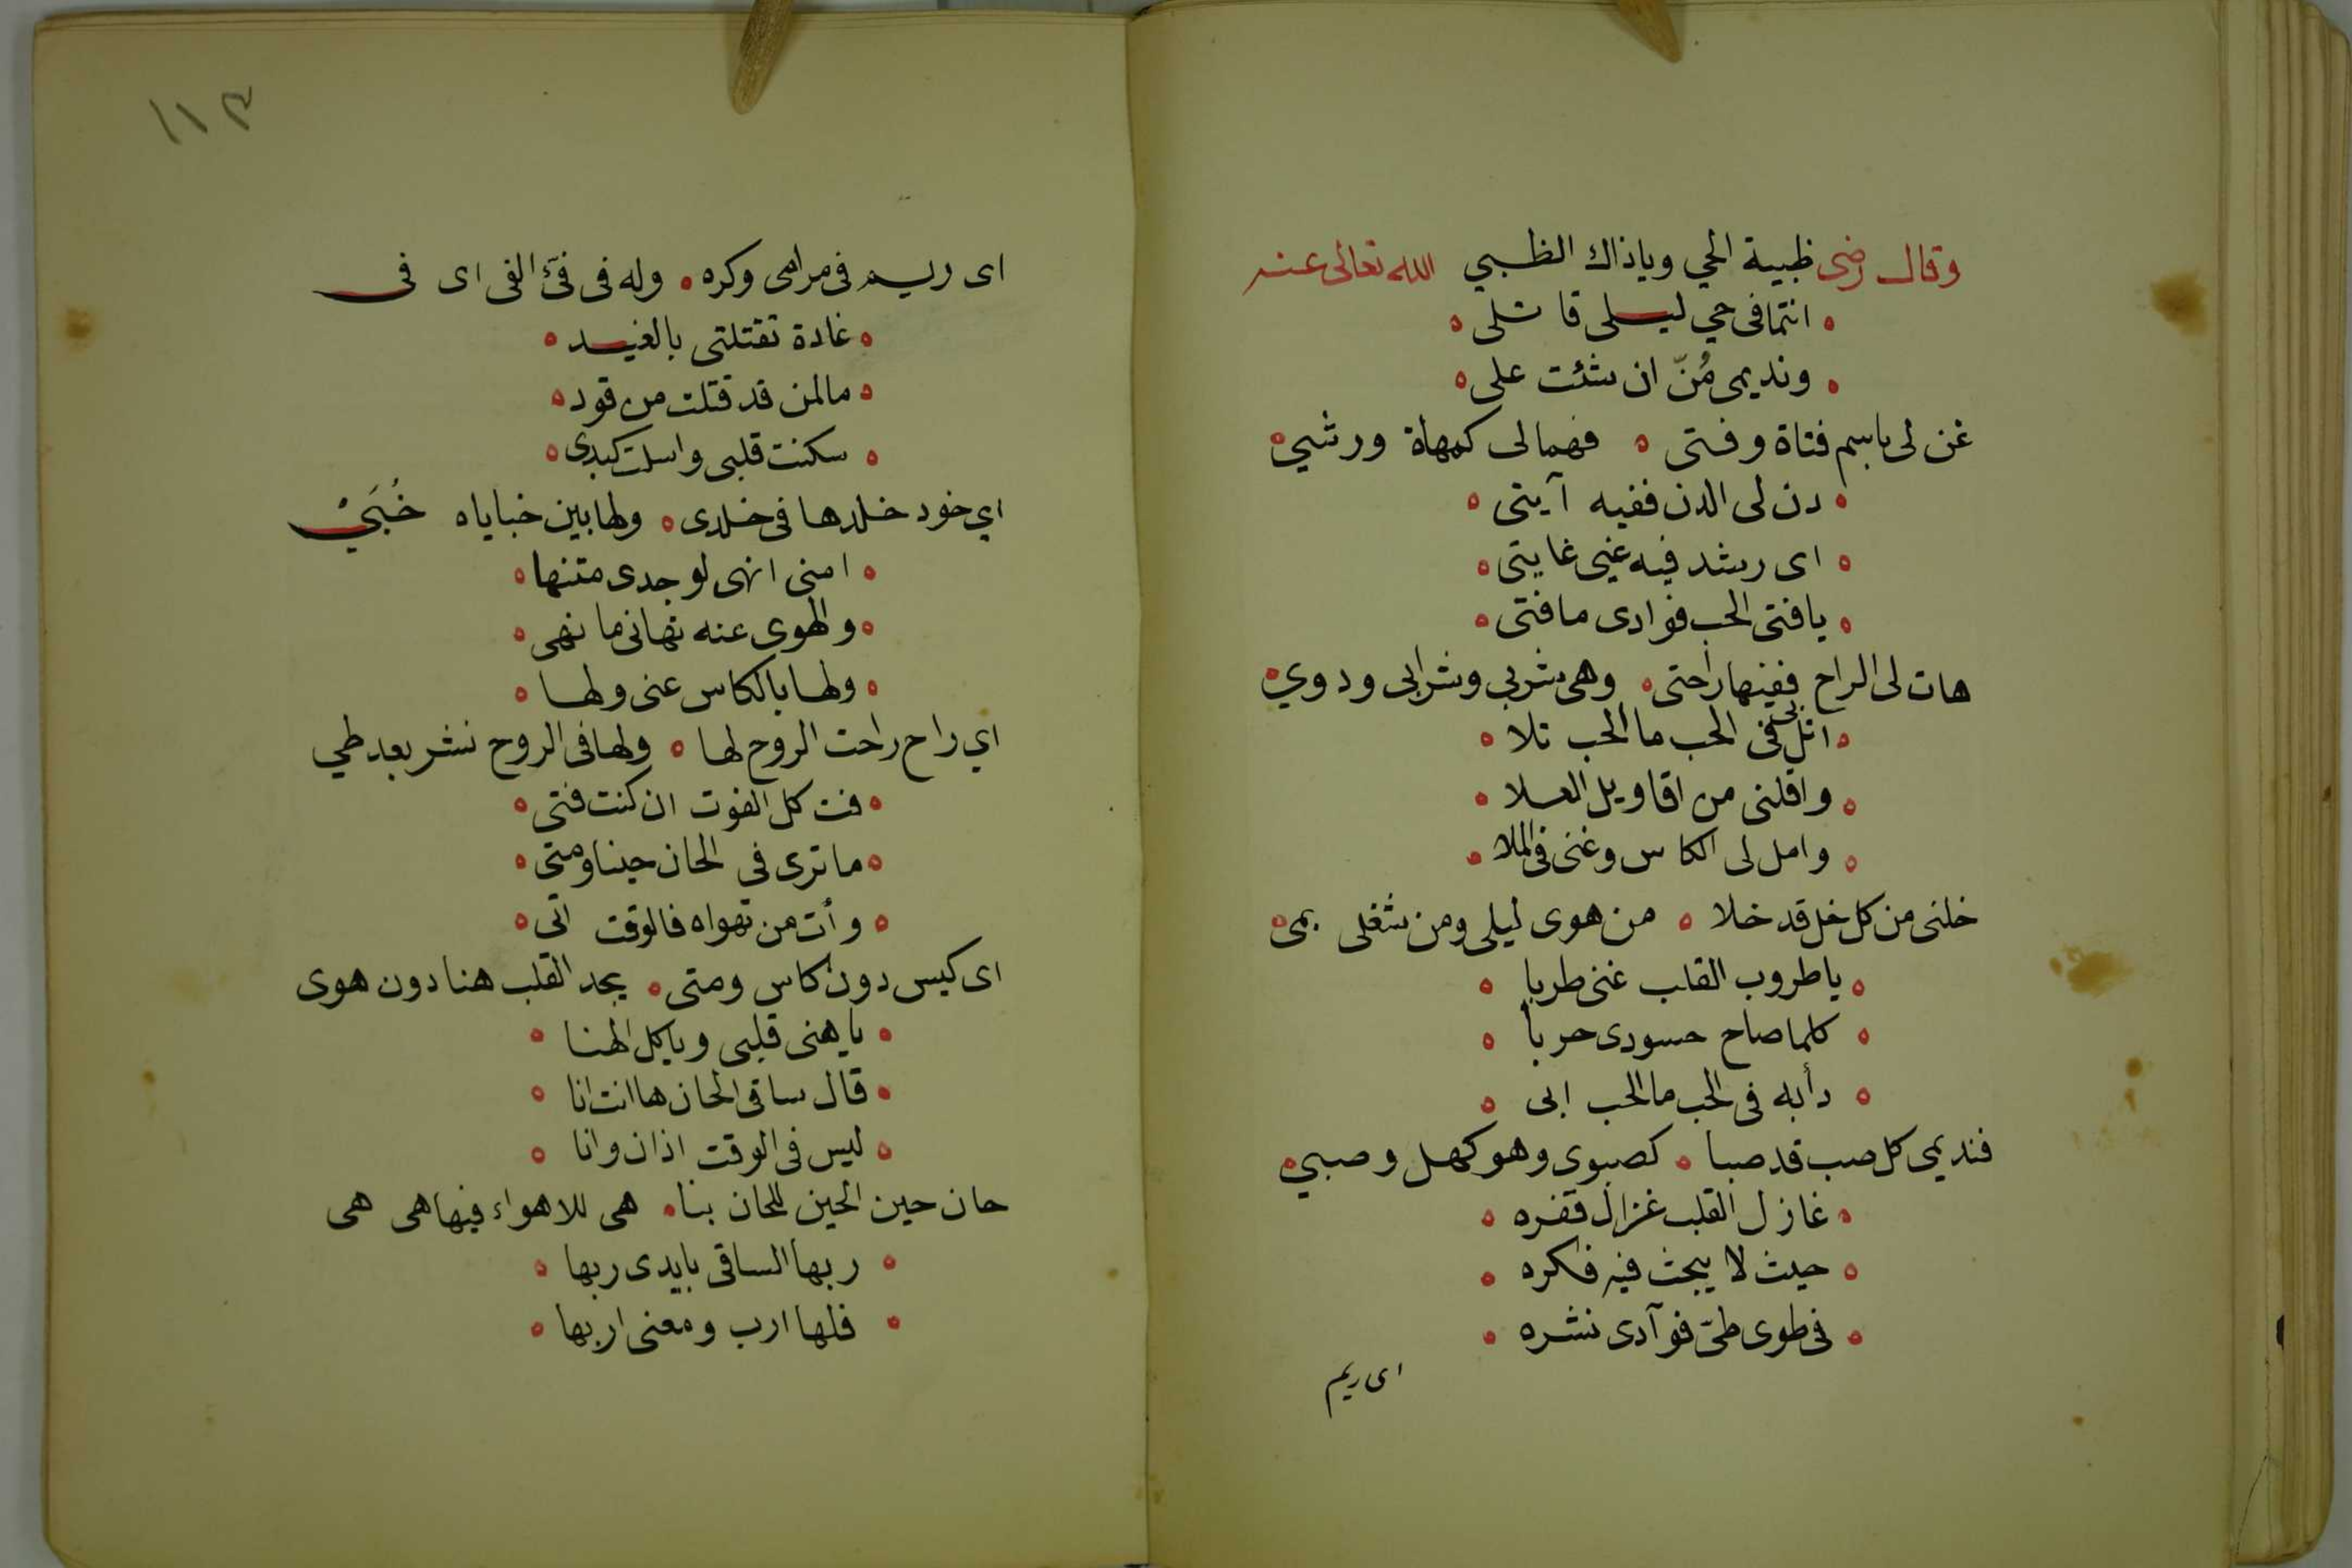 وقال رضى ظبية الحي وياذاك الظبي الله تعالى عنه
انتما فى حي ليلى قاتلى
ونديمى مُنّ ان شئت على
غن لى باسم فتاة وفتى ه فهما لى كمهاة ورشي
دن لى الدن ففيه آيتى
اى رشد فيه غيى غايتى
يا فتى الحب فوادى ما فتى
هات لى الراح ففيها راحتى ه وهى شربي وشرابى ودوي
اتل فى الحب ما الحب تلا
واقلنى من اقاويل العلا
وامل لى الكاس وغنى فى الملا
خلنى من كل خل قد خلا ه من هوى ليلى ومن شغلى بمى
يا طروب القلب غنى طربا
كلما صاح حسودى حربا
دأبه فى الحب ما الحب ابى
فنديمى كل صب قد صبا ه كصبوى وهو كهل وصبي
غازل القلب غزال قفره
حيث لا يبحث فيه فكره
فى طوى طىّ فوآدى نشره
اى ريم
١١٣
اى ريم فى مرامى وكره ه وله فى فئ الفى اى فى
غادة تقتلتى بالغيد
مالمن قد قتلت من قود
سكنت قلبى واسلت كبدى
اي خود خلدها فى خلدى ه ولها بين خباياه خُبَيْ
امنى انهى لوجدى متنها
والهوى عنه نهانى ما نهى
ولها بالكاس عنى ولها
اي راح راحت الروح لها ه ولها فى الروح نشر بعد طي
فت كل الفوت ان كنت فتى
ما ترى فى الحان حينا ومتى
وأت من تهواه فالوقت اتى
اى كيس دون كاس ومتى ه يجد القلب هنا دون هوى
يا هنى قلبى ويا كل الهنا
قال ساقى الحان ها انت انا
ليس فى الوقت اذان وانا
حان حين الحين للحان بنا ه هى للاهواء فيها هى هى
ربها الساقى بايدى ربها
فلها ارب ومعنى اربها